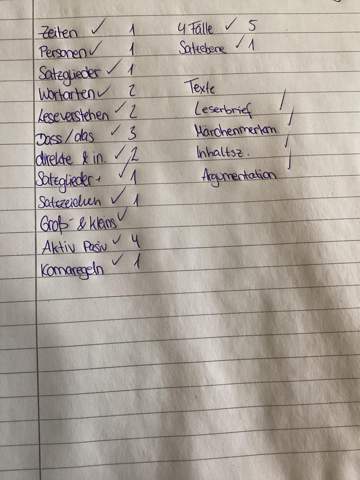 Zeiten ✓ 1
Personen ✓ 1
Satzglieder ✓ 1
Wortarten ✓ 2
Leseverstehen ✓ 2
Dass/das ✓ 3
direkte & in. ✓ 2
Satzglieder + ✓ 1
Satzzeichen ✓ 1
Groß & kleins ✓
Aktiv Pasiv ✓ 4
Komaregeln ✓ 1
4 Fälle ✓ 5
Satzebene ✓ 1
Texte
Leserbrief /
Märchenmerkm /
Inhaltsz. /
Argumentation /